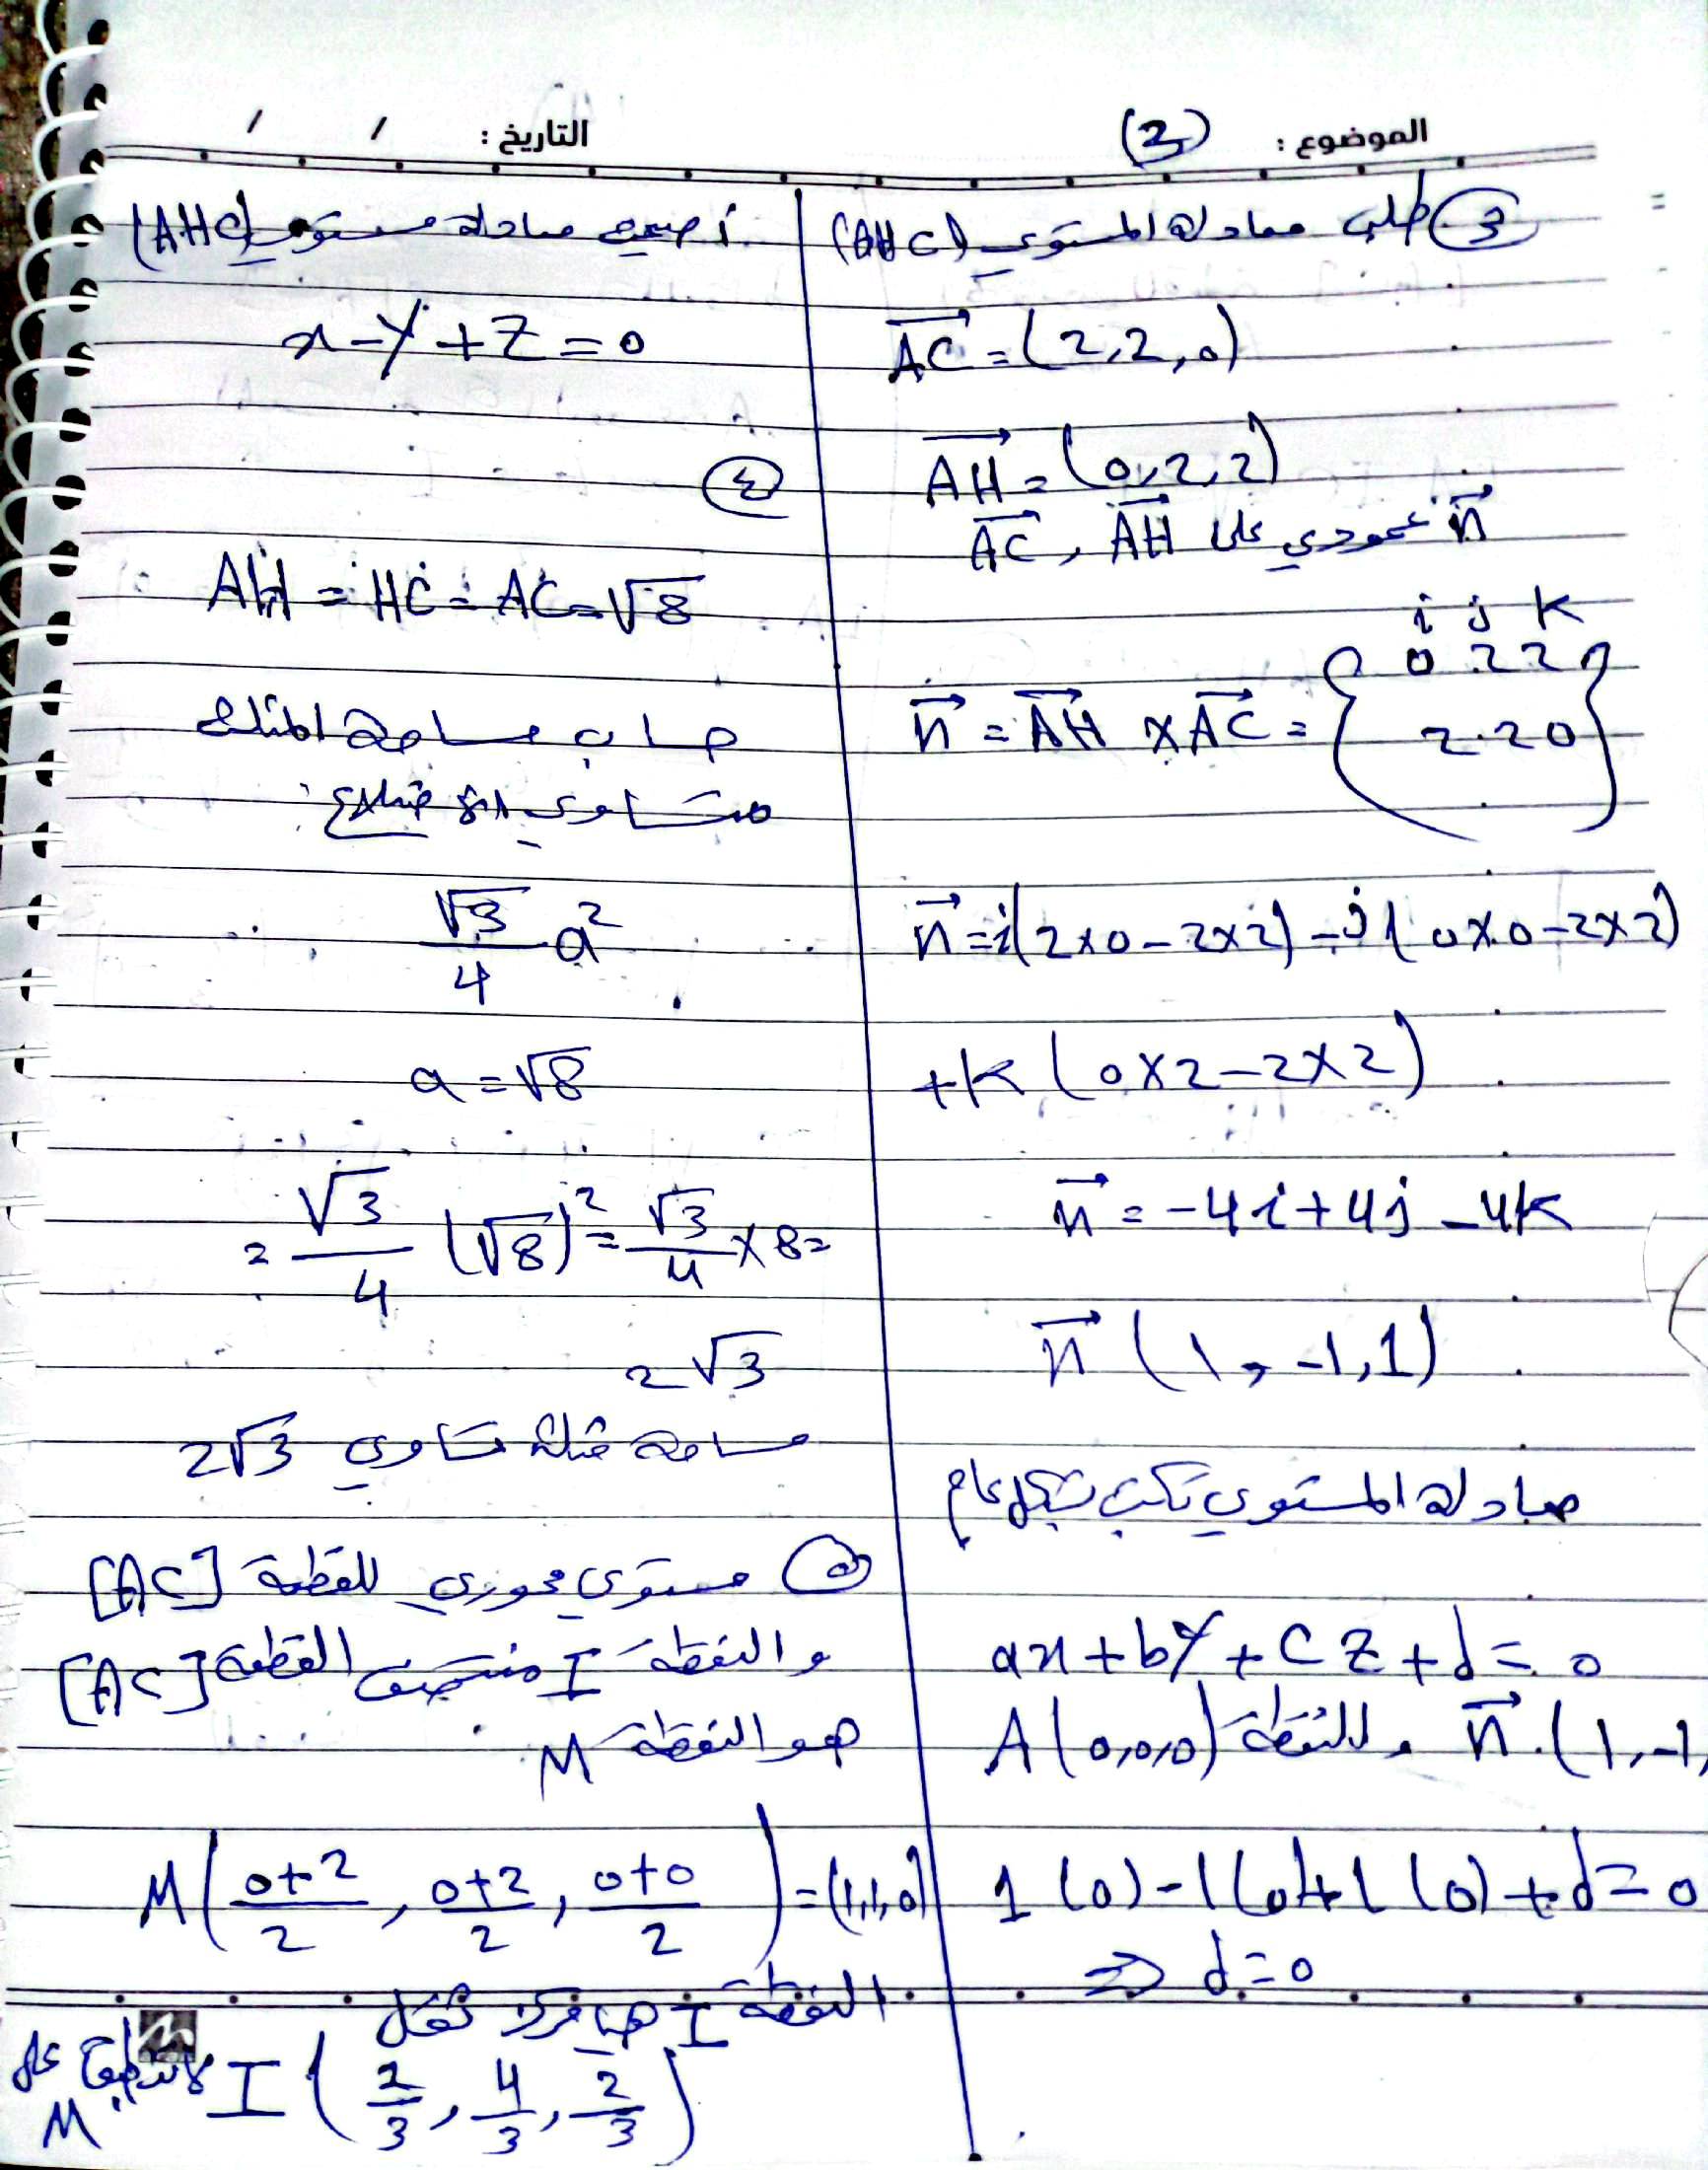 الموضوع : (2)
التاريخ : / /
③ طلب معادلة المستوي (AHC)
AC = (2,2,0)
AH = (0,2,2)
n عمودي على AC , AH
i j K
0 2 2
n = AH × AC =
2 2 0
n = i(2×0 - 2×2) - j(0×0 - 2×2)
+K (0×2 - 2×2)
n = -4i + 4j - 4K
n (1, -1, 1)
معادلة المستوي تكتب بشكل عام
ax + by + cz + d = 0
n (1, -1, والنقطة A(0,0,0)
1(0) - 1(0) + 1(0) + d = 0
⇒ d = 0
أصبح معادلة مستوي (AHC)
x - y + z = 0
④
AH = HC = AC = √8
حساب مساحة المثلث
متساوي الأضلاع
√3/4 a²
a = √8
= √3/4 (√8)² = √3/4 × 8 =
2√3
مساحة مثلث تساوي 2√3
⑤ مستوي محوري للقطعة [AC]
والنقطة I منتصف القطعة [AC]
هو النقطة M
M((0+2)/2, (0+2)/2, (0+0)/2) = (1,1,0)
النقطة I هنا مركز ثقل
I (2/3, 4/3, 2/3) لا تنطبق على
M